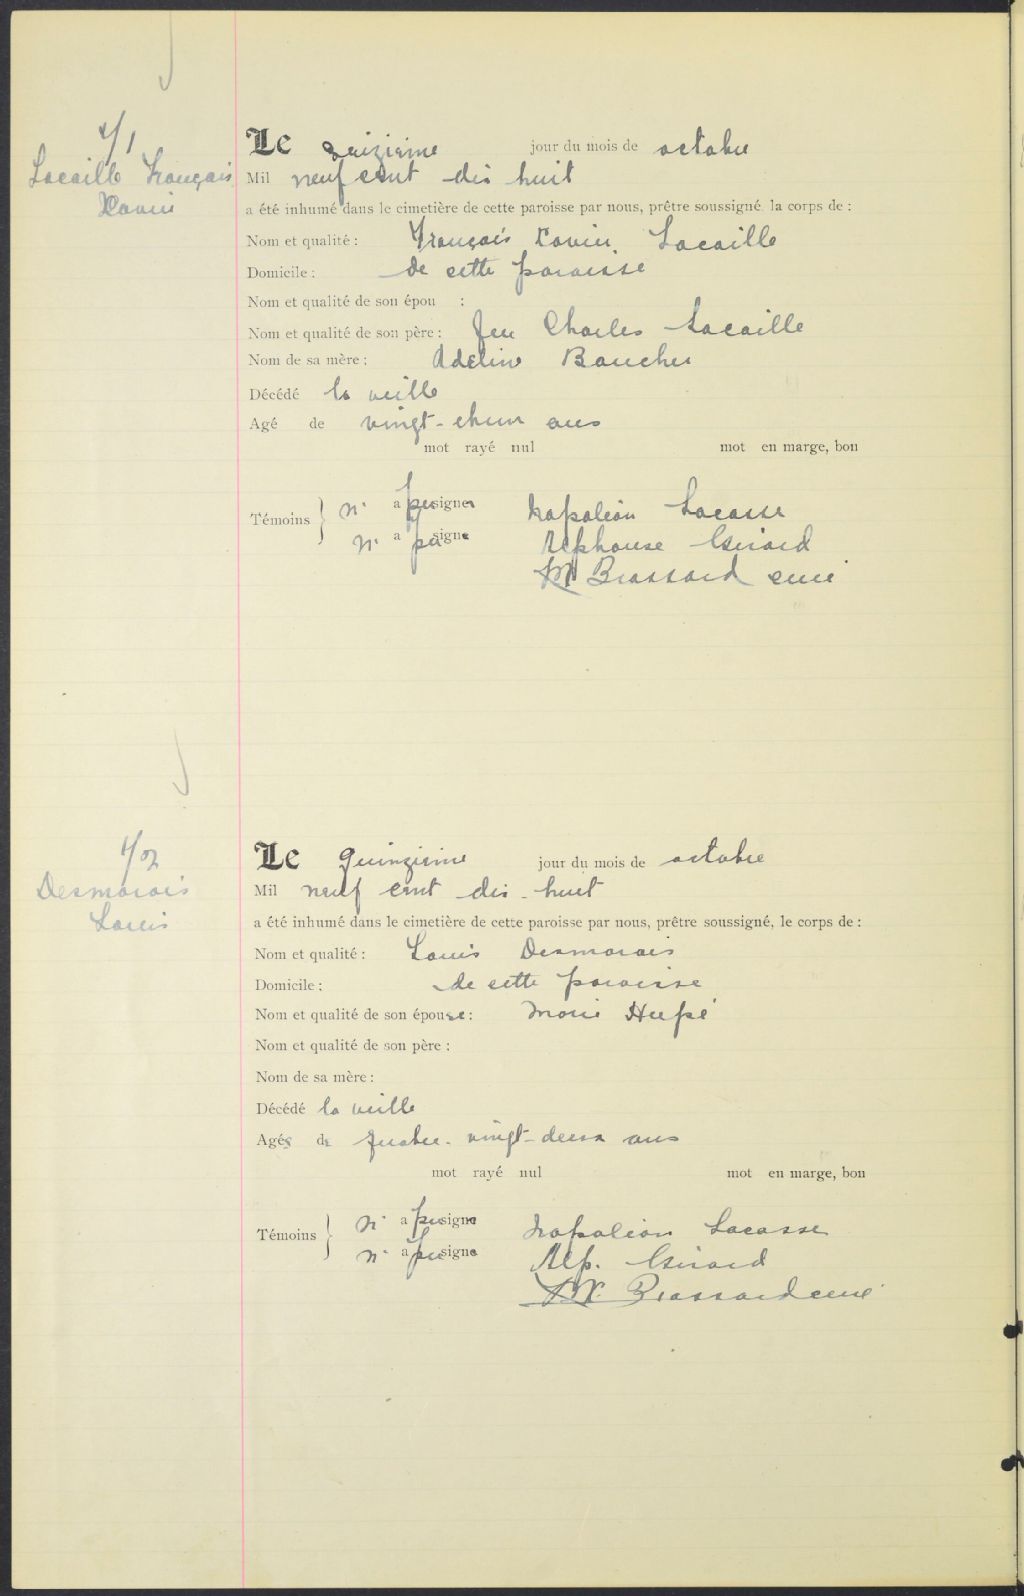 Lacaille François
Xavier
Le seizième jour du mois de octobre
Mil neuf cent dix huit
a été inhumé dans le cimetière de cette paroisse par nous, prêtre soussigné, la corps de :
Nom et qualité : François Xavier Lacaille
Domicile : de cette paroisse
Nom et qualité de son épou :
Nom et qualité de son père : feu Charles Lacaille
Nom de sa mère : Adeline Boucher
Décédé la veille
Agé de vingt- ans
mot rayé nul mot en marge, bon
Témoins } n' a pu signer Napoléon Lacasse
n' a pu signe Alphonse Girard
Brassard curé
Desmarais
Louis
Le quinzième jour du mois de octobre
Mil neuf cent dix-huit
a été inhumé dans le cimetière de cette paroisse par nous, prêtre soussigné, le corps de :
Nom et qualité : Louis Desmarais
Domicile : de cette paroisse
Nom et qualité de son épouse : Marie Hupé
Nom et qualité de son père :
Nom de sa mère :
Décédé la veille
Agés de quatre-vingt-deux ans
mot rayé nul mot en marge, bon
Témoins } n' a pu signe Napoléon Lacasse
n' a pu signe Alp. Girard
Brassard curé